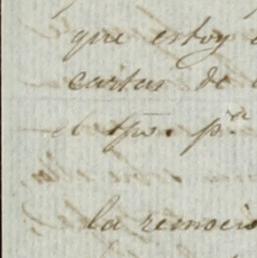 que estoy
cartas de
el tpo. p.ª
la remocio